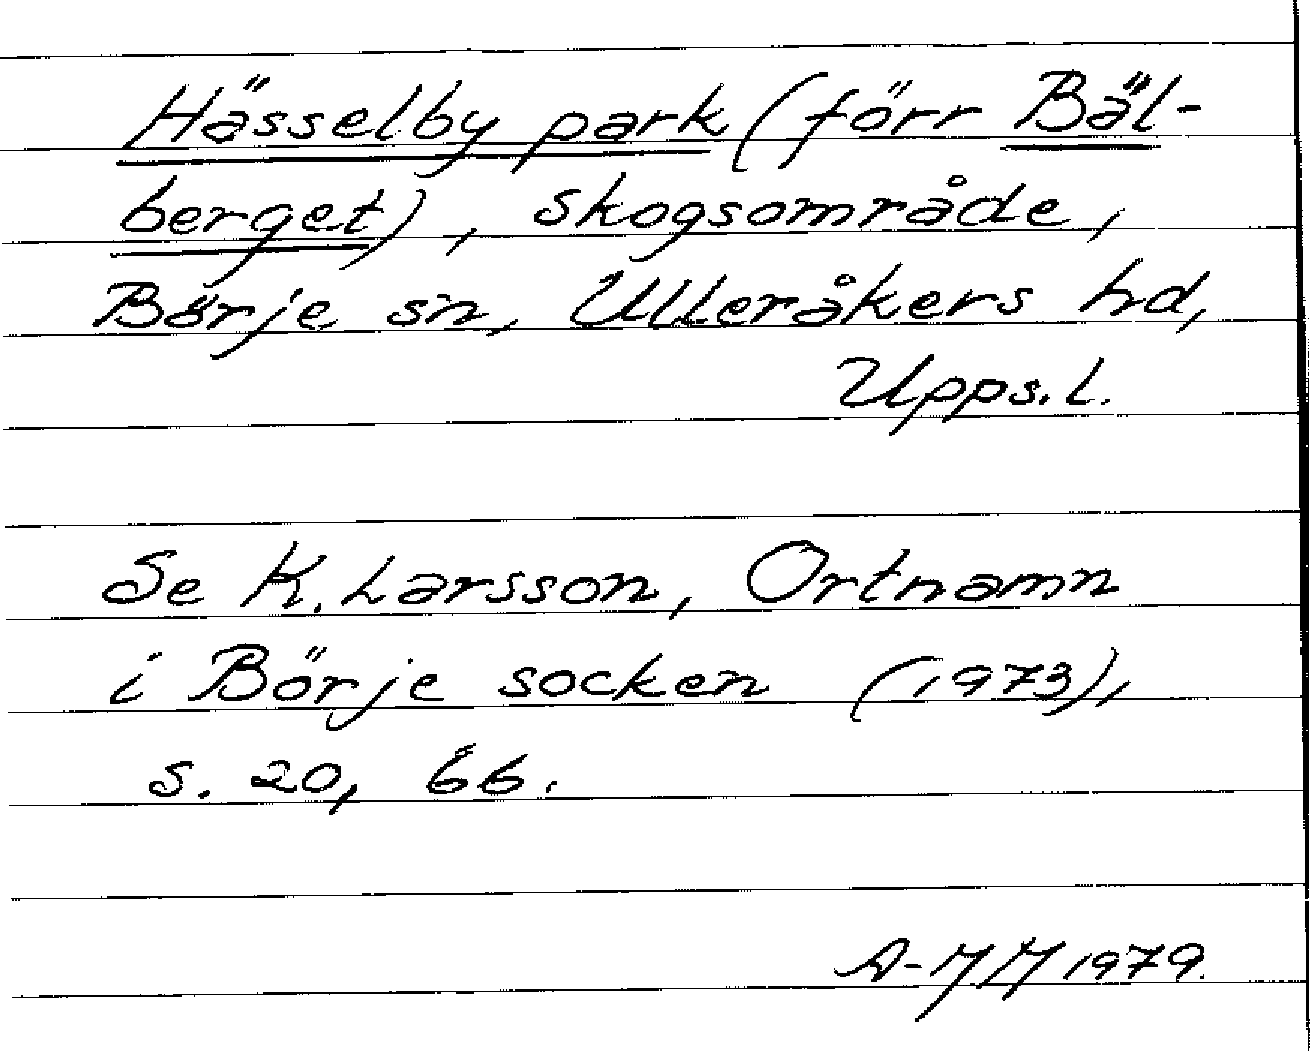 Hässelby park (förr Bäl-
berget), skogsområde,
Börje sn, Ulleråkers hd,
Upps. l.
Se K. Larsson, Ortnamn
i Börje socken (1973),
s. 20, 66.
1979.